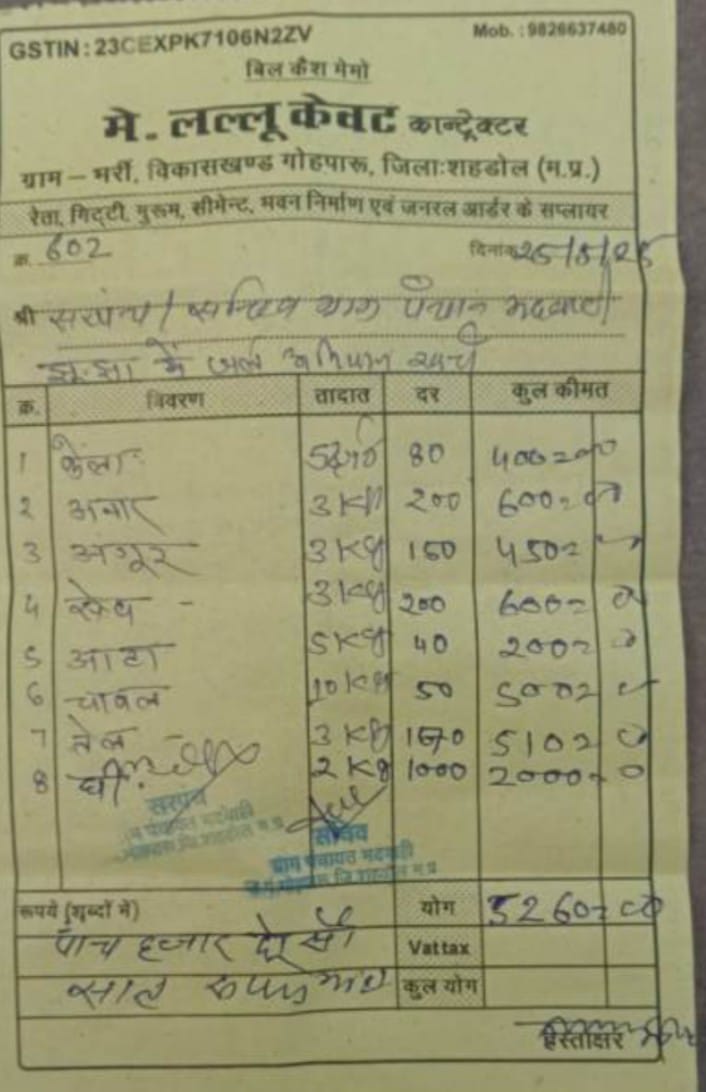 GSTIN : 23CEXPK7106N2ZV Mob. : 9826637480
बिल कैश मेमो
मे. लल्लू केवट कान्ट्रेक्टर
ग्राम – मर्री, विकासखण्ड गोहपारू, जिला:शहडोल (म.प्र.)
रेता, गिट्टी, मुरूम, सीमेन्ट, भवन निर्माण एवं जनरल आर्डर के सप्लायर
क्र. 602 दिनांक
श्री सरपंच / सचिव ग्राम पंचायत
में जल अभियान खर्च
क्र. विवरण तादात दर कुल कीमत
1 केला 5 80 400=00
2 अनार 3 kg 200 600=00
3 अंगूर 3 kg 150 450=00
4 सेब - 3 kg 200 600=00
5 आटा 5 kg 40 200=00
6 चावल 10 kg 50 500=00
7 तेल - 3 kg 170 510=00
8 घी 2 kg 1000 2000=00
सरपंच
सचिव
ग्राम पंचायत
रूपये (शब्दों में) योग 5260=00
पांच हजार दो सौ Vat tax
साठ रूपये मात्र कुल योग
हस्ताक्षर